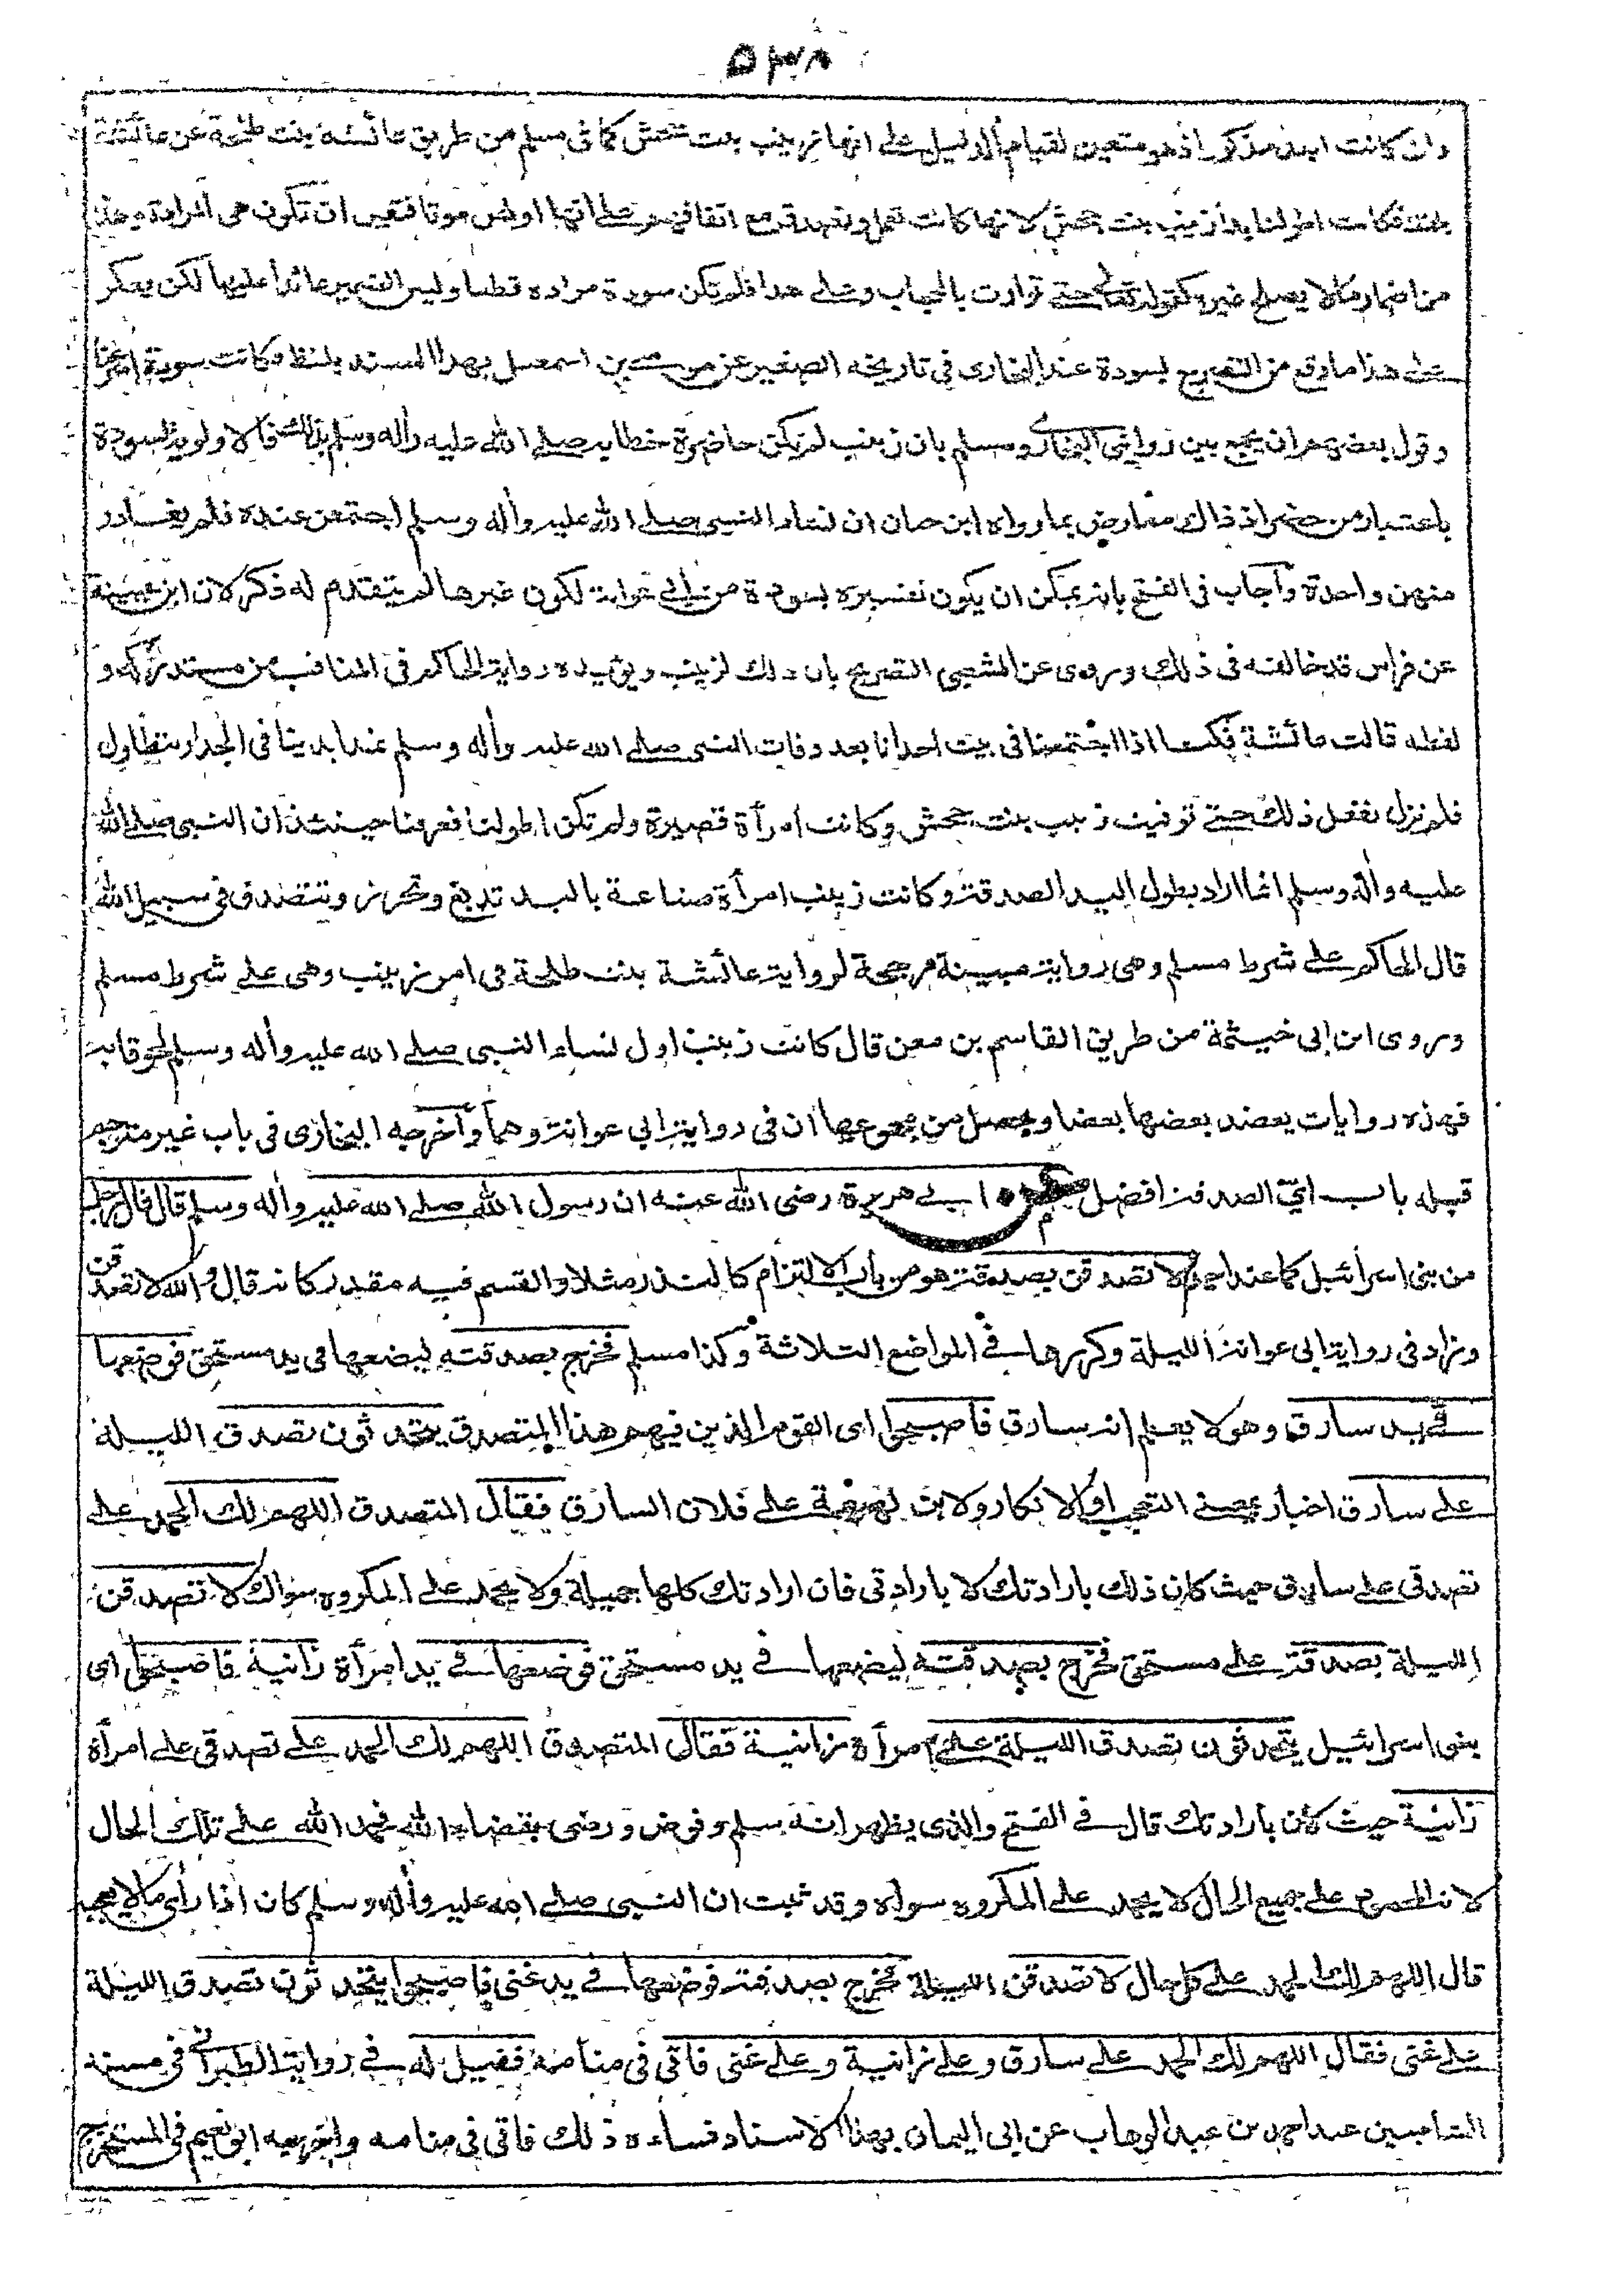 ٥٣٨
وان كانت مذكور اذ هو متعين لقيام الدليل على انها زينب بنت جحش كما فى مسلم من طريق عائشة بنت طلحة عن عائشة
بلفظ فكانت اطولنا يدا زينب بنت جحش لانها كانت تعمل وتصدق مع اتفاقهم على انها اولهن موتا فتعين ان تكون هى المرادة وهذا
من اضمار مالا يصلح غيره كقوله تعالى حتى توارت بالحجاب وعلى هذا فلم تكن سودة مراده قطعا وليس الضمير عائدا عليها لكن يعكر
على هذا ما وقع من التصريح بسودة عند البخارى فى تاريخه الصغير عن موسى بن اسمعيل بهذا المسند بلفظ فكانت سودة اسرعنا
وقول بعضهم ان يجمع بين روايتى البخارى ومسلم بان زينب لم تكن حاضرة خطابه صلى الله عليه وأله وسلم بذلك فالاولوية لسودة
باعتبار من حضر اذ ذاك معارض بما رواه ابن حبان ان نساء النبى صلى الله عليه وأله وسلم اجتمعن عنده فلم يغادر
منهن واحدة وأجاب فى الفتح بانه يمكن ان يكون تفسيره بسودة من ابى عوانة لكون غيرها لم يتقدم له ذكر لان ابن عيينة
عن فراس قد خالفه فى ذلك وروى عن الشعبى التصريح بان ذلك لزينب ويؤيده رواية الحاكم فى المناقب من مستدركه و
لفظه قالت عائشة فكنا اذا اجتمعنا فى بيت احدانا بعد وفات النبى صلى الله عليه وأله وسلم نمد ايدينا فى الجدار نتطاول
فلم نزل نفعل ذلك حتى توفيت زينب بنت جحش وكانت امرأة قصيرة ولم تكن اطولنا فعرفنا حينئذ ان النبى صلى الله
عليه وأله وسلم انما اراد بطول اليد الصدقة وكانت زينب امرأة صناعة باليد تدبغ وتخرز وتتصدق فى سبيل الله
قال الحاكم على شرط مسلم وهى رواية مبينة مرجحة لرواية عائشة بنت طلحة فى امر زينب وهى على شرط مسلم
وروى ابن ابى خيثمة من طريق القاسم بن معن قال كانت زينب اول نساء النبى صلى الله عليه وأله وسلم لحوقا به
فهذه روايات يعضد بعضها بعضا ويحصل من مجموعها ان فى رواية ابى عوانة وهما وأخرجه البخارى فى باب غير مترجم
قبله باب اىّ الصدقة افضل عن ابى هريرة رضى الله عنه ان رسول الله صلى الله عليه وأله وسلم قال قال رجل
من بنى اسرائيل كما عند احمد لاتصدقن بصدقة هو من باب الالتزام كالنذر مثلا والقسم فيه مقدر كانه قال والله لاتصدقن
وزاد فى رواية ابى عوانة الليلة وكررها فى المواضع الثلاثة وكذا مسلم فخرج بصدقته ليضعها فى يد مستحق فوضعها
فى يد سارق وهو لا يعلم انه سارق فأصبحوا اى القوم الذين فيهم هذا المتصدق يتحدثون تصدق الليلة
على سارق اخبار بمعنى التعجب او الانكار ولابن لهيعة على فلان السارق فقال المتصدق اللهم لك الحمد على
تصدقى على سارق حيث كان ذلك بارادتك لا بارادتى فان ارادتك كلها جميلة ولا يحمد على المكروه سواك لاتصدقن
الليلة بصدقة على مستحق فخرج بصدقته ليضعها فى يد مستحق فوضعها فى يد امرأة زانية فاصبحوا اى
بنى اسرائيل يتحدثون تصدق الليلة على امرأة زانية فقال المتصدق اللهم لك الحمد على تصدقى على امرأة
زانية حيث كان بارادتك قال فى الفتح والذى يظهر انه سلم وفوض ورضى بقضاء الله فحمد الله على تلك الحال
لانه المحمود على جميع الحال لا يحمد على المكروه سواه وقد ثبت ان النبى صلى الله عليه وأله وسلم كان اذا رأى مالا يعجبه
قال اللهم لك الحمد على كل حال لاتصدقن الليلة فخرج بصدقته فوضعها فى يد غنى فاصبحوا يتحدثون تصدق الليلة
على غنى فقال اللهم لك الحمد على سارق وعلى زانية وعلى غنى فاتى فى منامه فقيل له فى رواية الطبرانى فى مسند
الشاميين عن احمد بن عبد الوهاب عن ابى اليمان بهذا الاسناد فساءه ذلك فاتى فى منامه واخرجه ابو نعيم فى المستخرج